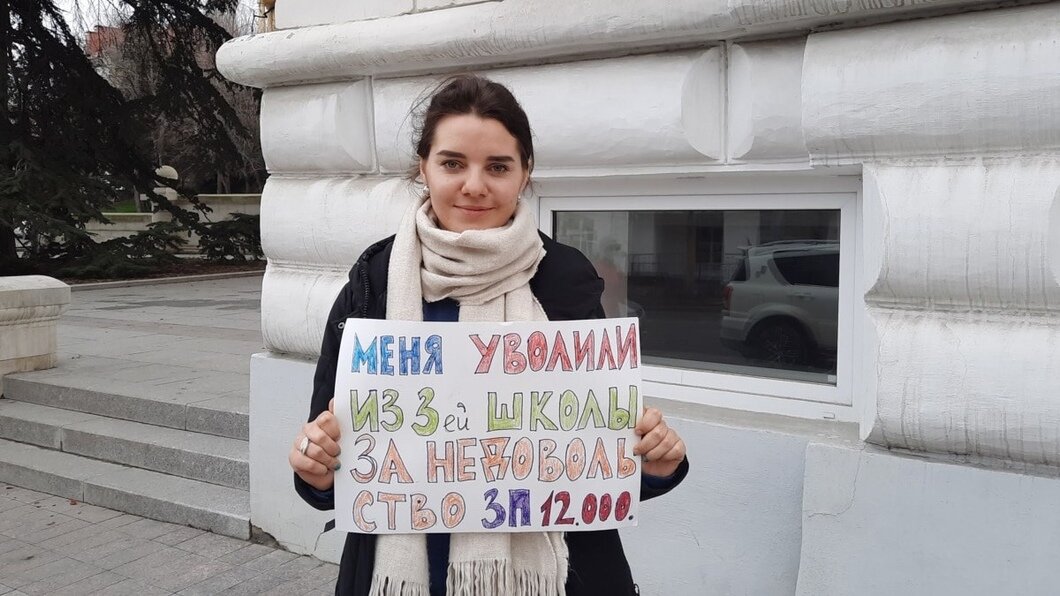 МЕНЯ УВОЛИЛИ
ИЗ 3ей ШКОЛЫ
ЗА НЕДОВОЛЬ
СТВО ЗП 12.000.